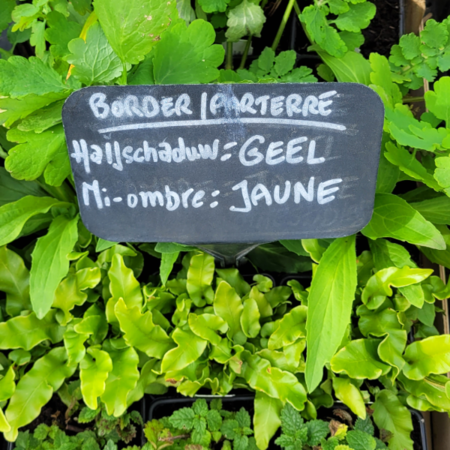 BORDER/PARTERRE
Halfschaduw = GEEL
Mi-ombre : JAUNE